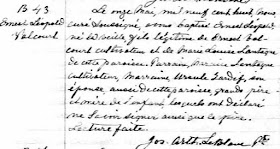 B 43
Ernest Léopold
Valcourt
Le onze Mai mil neuf cent huit, nous
curé soussigné, avons baptisé Ernest Léopold
né la veille, fils légitime de Ernest Val-
court cultivateur et de Marie Louise
de cette paroisse. Parrain,
cultivateur, Marraine Ursule son
épouse, aussi de cette paroisse, grands père
de l'enfant, lesquels ont déclaré
ne savoir signer ainsi que le père.
Lecture faite.
Jos. Arth. LeBlanc Ptre